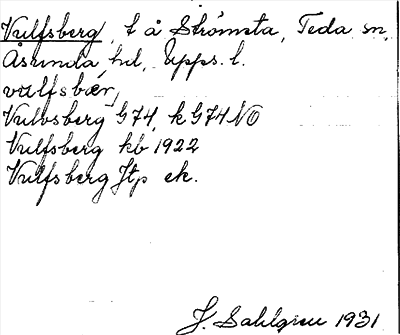 Vulfsberg, t å Strömsta, Teda sn,
Åsunda hd, Upps. l.
vulfsbær,
Vulvsberg G74, k G74 NO
Vulfsberg kb 1922
Vulfsberg Jtp ek.
J. Sahlgren 1931